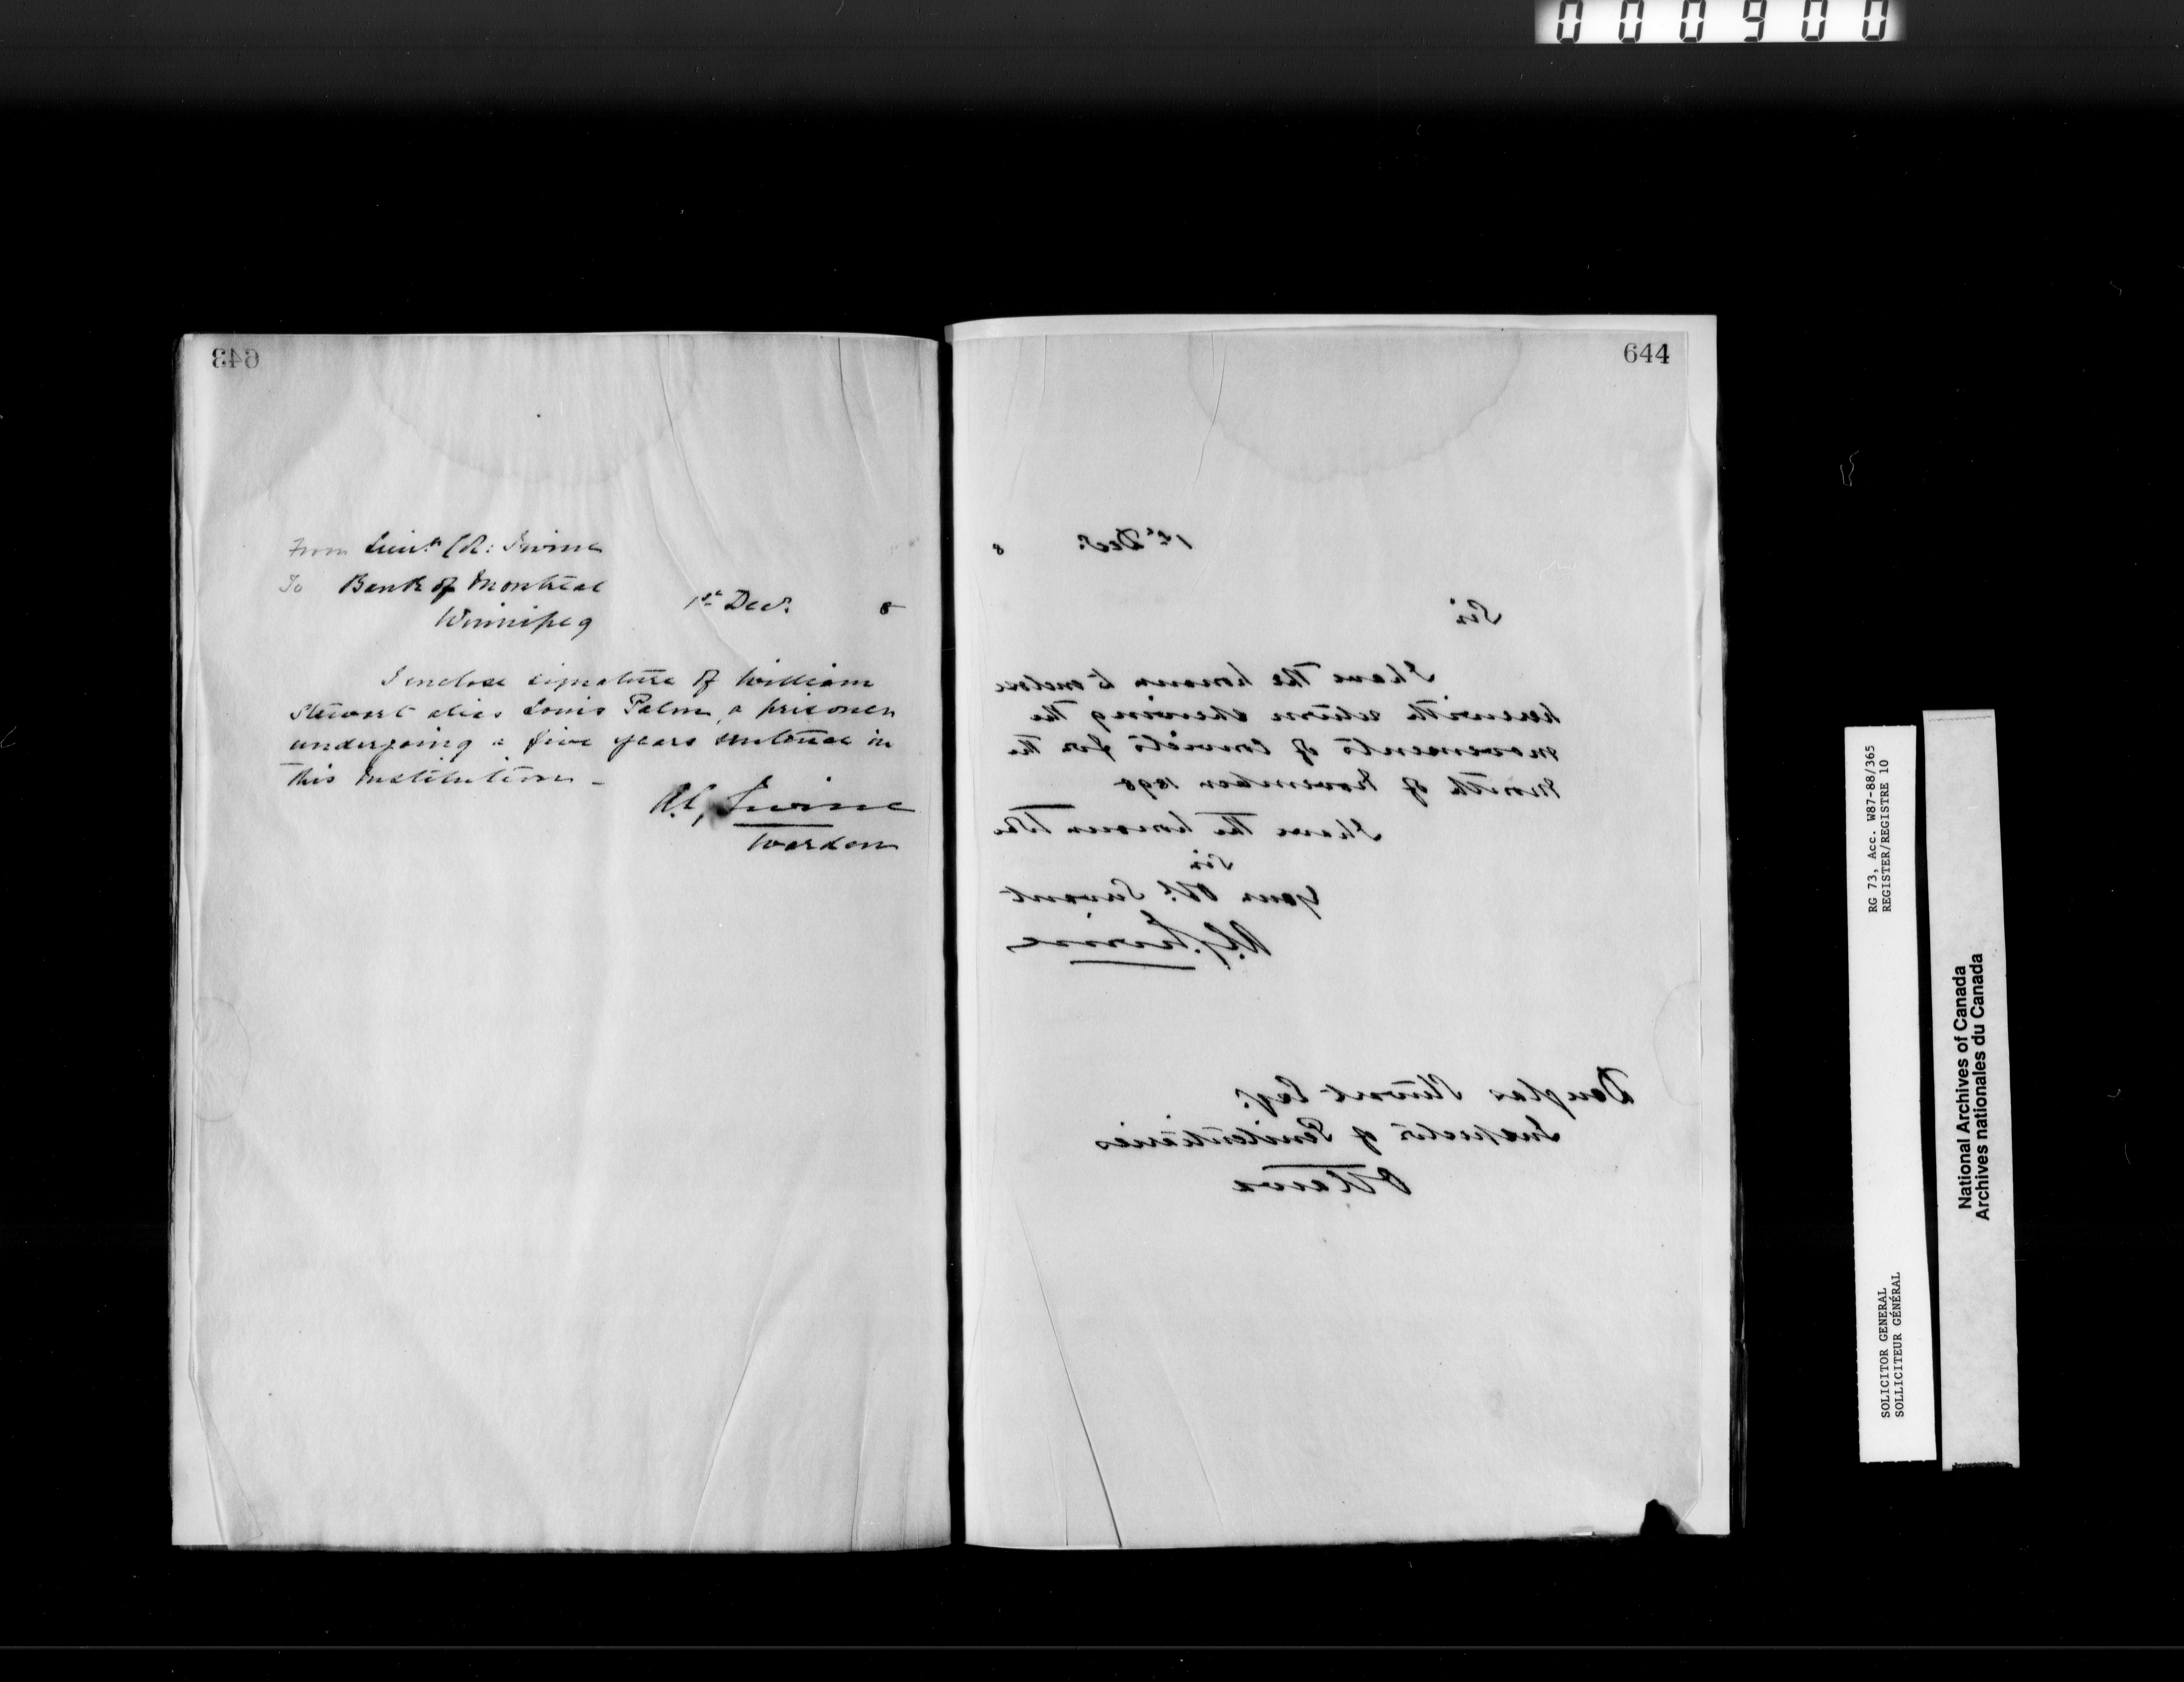 000900
643
From Lieut. Col: Irvine
To Bank of Montreal
Winnipeg
1st Decr. 8
I enclose signature of William
Stewart alias Louis Palm, a prisoner
undergoing a five years sentence in
this Institution –
A.G. Irvine
Warden
644
1st Decr. 8
Sir
I have the honour to enclose
herewith return shewing the
movements of Convicts for the
Month of November 1898
I have the honour to be
Sir
Your Obt. Servant
A.G. Irvine
Douglas Stewart Esq.
Inspector of Penitentiaries
Ottawa
RG 73, Acc. W87-88/365
REGISTER/REGISTRE 10
SOLICITOR GENERAL
SOLLICITEUR GÉNÉRAL
National Archives of Canada
Archives nationales du Canada